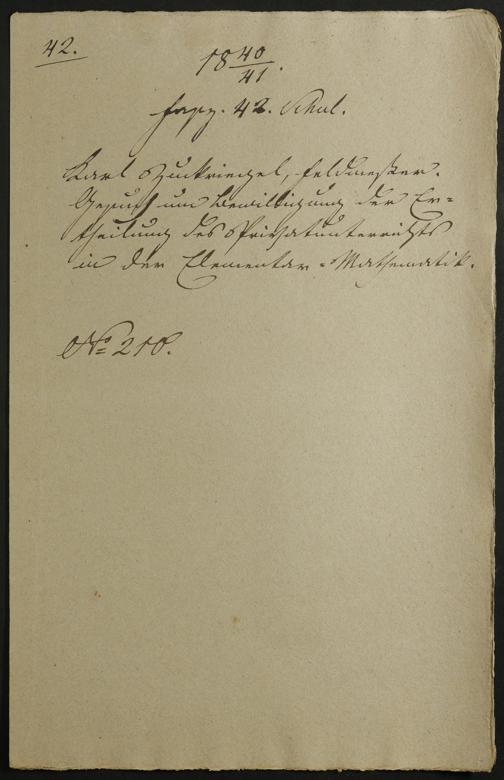 42.
18 40/41.
Fasz. 42. Schul.
Karl Zunkriegel, Feldmesser.
Gesuch um Bewilligung der Er=
theilung des Privatunterrichts
in der Elementar=Mathematik.
No 210.